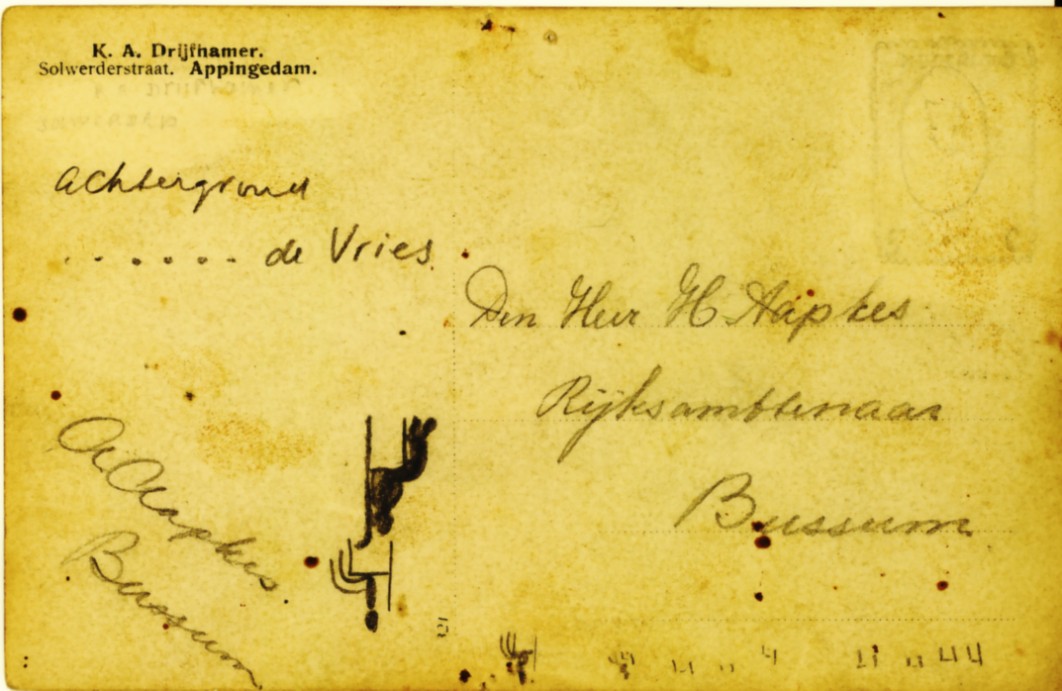 K. A. Drijfhamer.
Solwerderstraat. Appingedam.
achtergrond
. . . . . . . de Vries.
Den Heer H Aapkes
Rijksambtenaar
Bussum
A Aapkes
Bussum